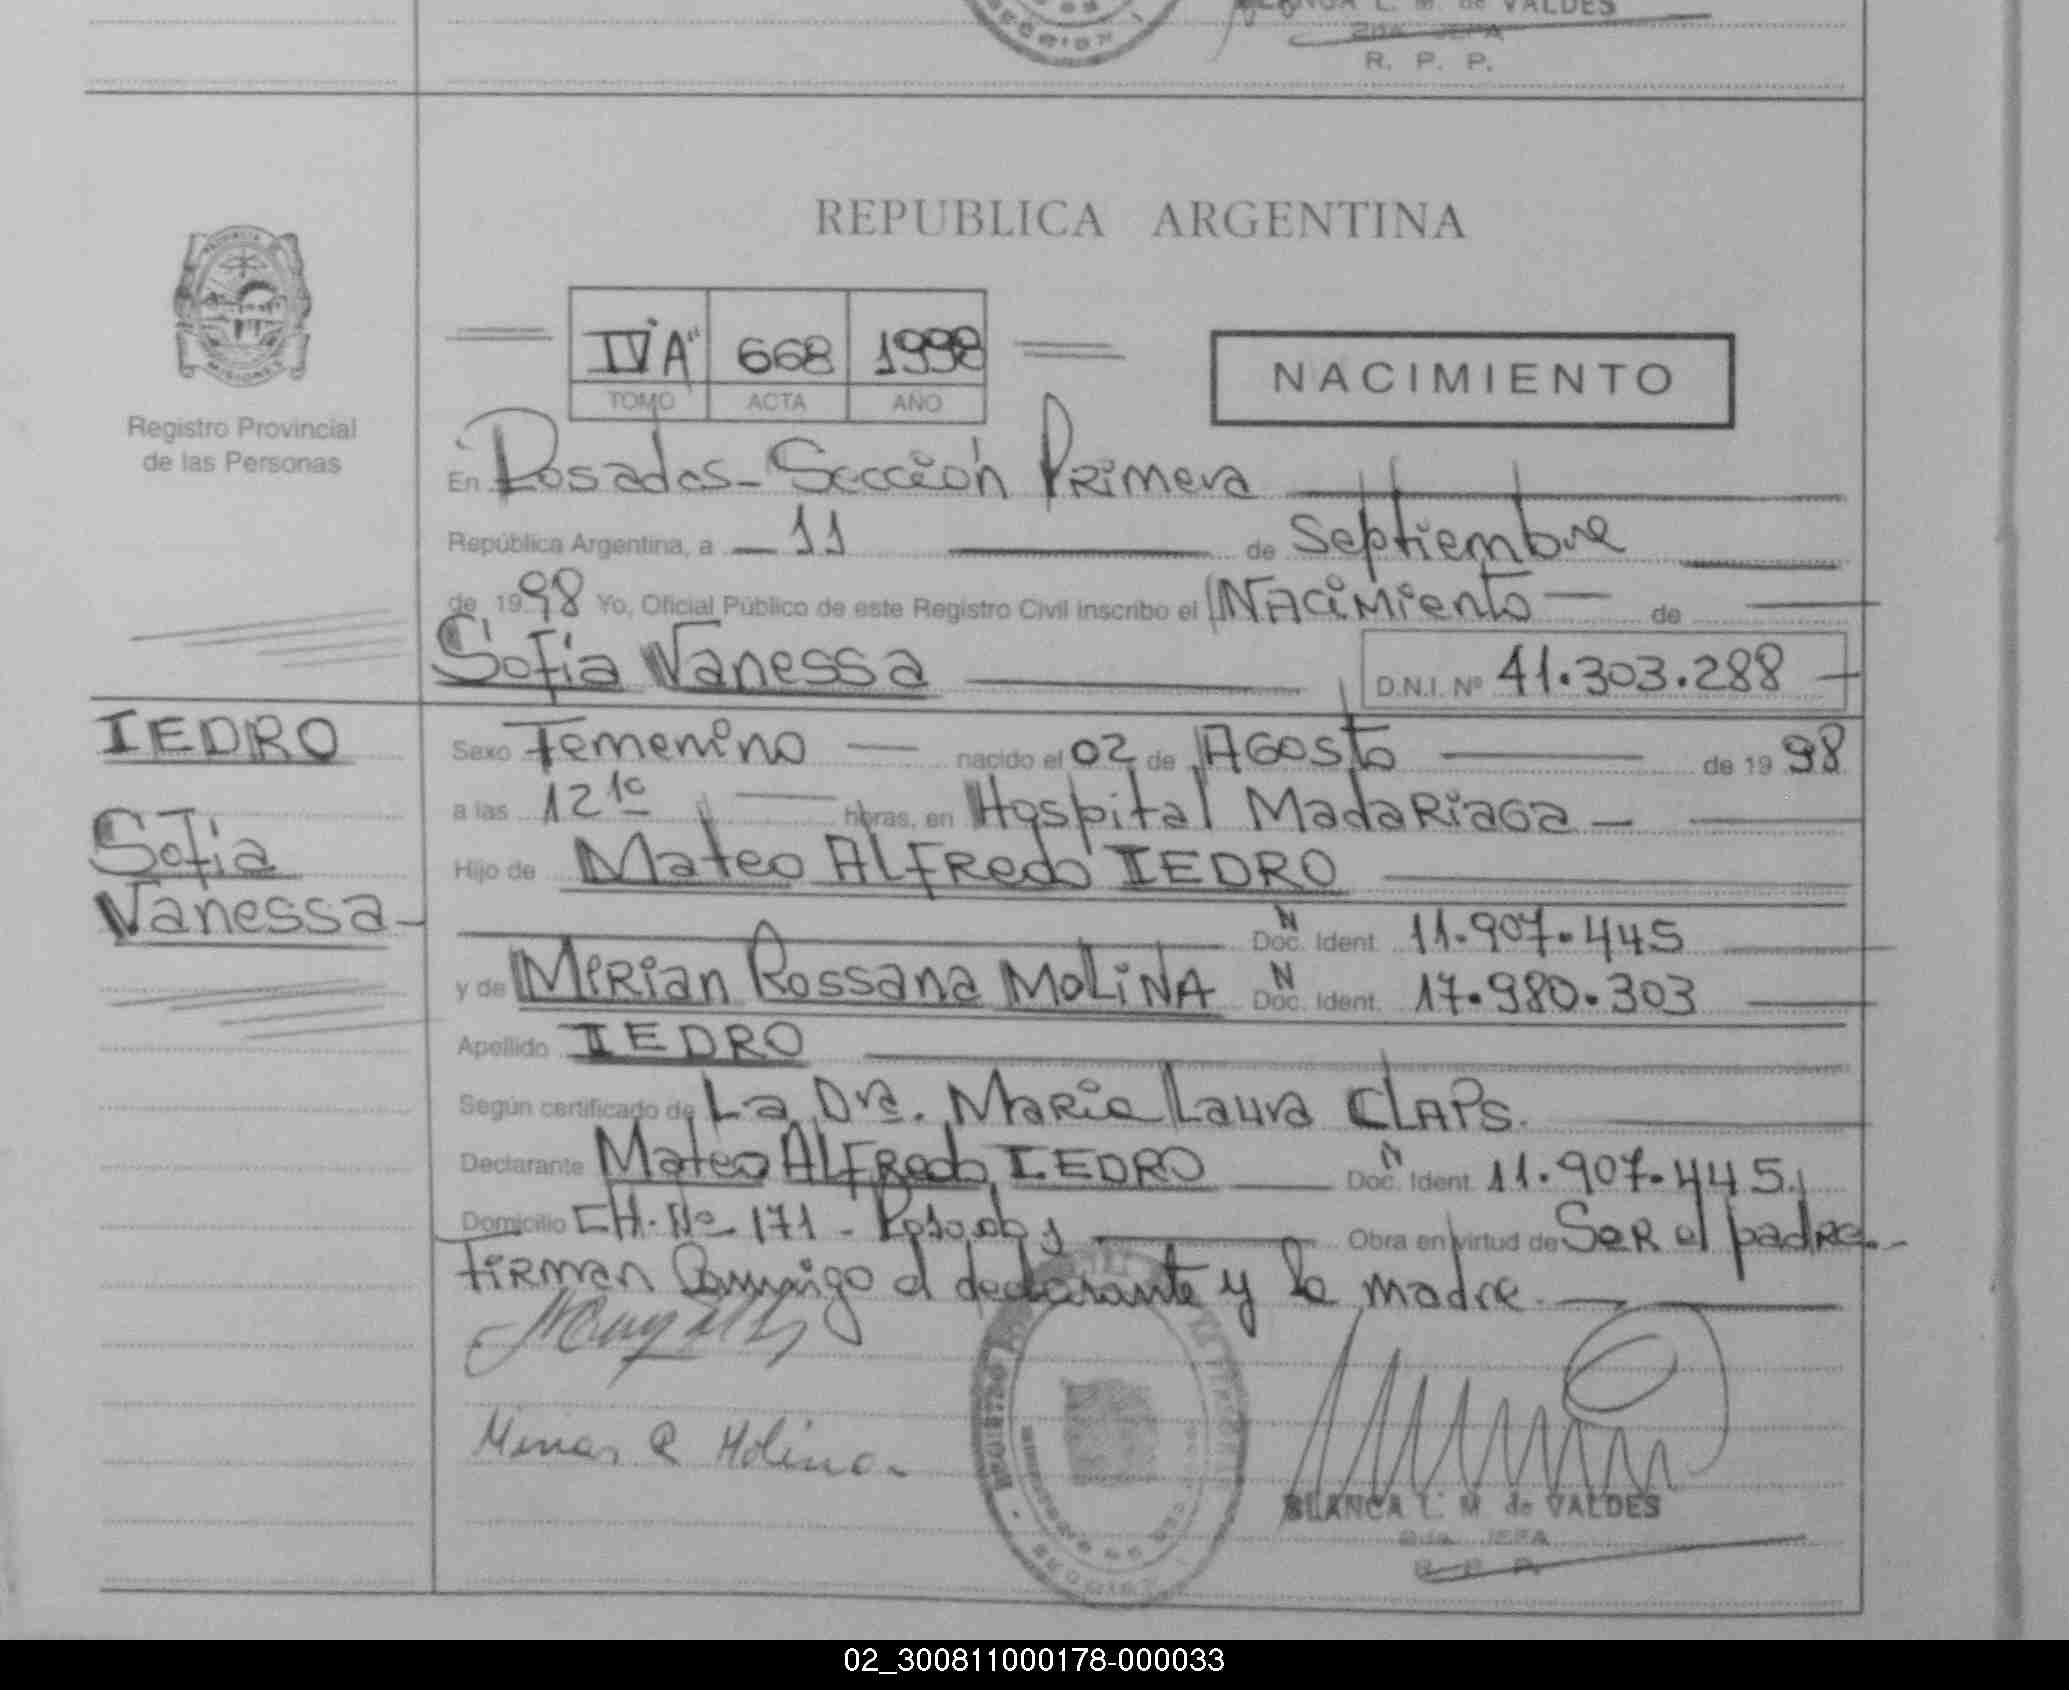 BLANCA L. M. de VALDES
2da. JEFA
R. P. P.
REPUBLICA ARGENTINA
PROVINCIA DE
MISIONES
Registro Provincial
de las Personas
IV "A" 668 1998
TOMO ACTA AÑO
NACIMIENTO
En Posadas - Sección Primera
República Argentina, a 11 de Septiembre
de 1998 Yo, Oficial Público de este Registro Civil inscribo el Nacimiento de
Sofía Vanessa D.N.I. Nº 41.303.288
IEDRO
Sofía
Vanessa
Sexo Femenino nacido el 02 de Agosto de 1998
a las 12 10 horas, en Hospital Madariaga
Hijo de Mateo Alfredo IEDRO
N
Doc. Ident. 11.907.445
N
y de Mirian Rossana MOLINA Doc. Ident. 17.980.303
Apellido IEDRO
Según certificado de La Dra. Maria Laura CLAPS.
N
Declarante Mateo Alfredo IEDRO Doc. Ident. 11.907.445
Domicilio CH. Nº 171 - Posadas Obra en virtud de Ser el padre.
firman conmigo el declarante y la madre.
R Molina
BLANCA L. M de VALDES
2da. JEFA
R. P. P.
02_300811000178-000033